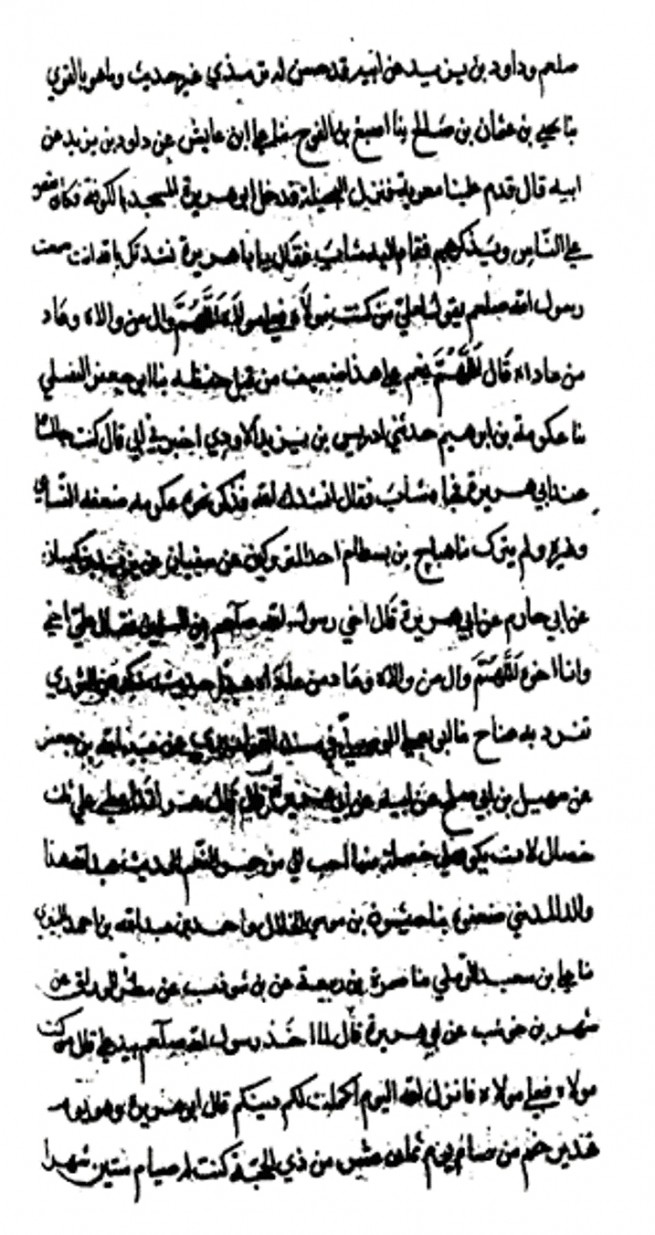 صلعم وداود بن يزيد عن ابيه قد حسن له ت مذي غير حديث وما هو بالقوي
بنا يحيى بن عثمان بن صالح بنا اصبغ بن الفرج بنا علي ابن عابس عن داود بن يزيد عن
ابيه قال قدم علينا معوية فنزل النخيلة قد خل ابو هريرة المسجد بالكوفة فكان
على الناس ويذكرهم فقام اليه شاب فقال يا باهريرة نشدتك بالله انت سمعت
رسول الله صلعم يقول لعلي من كنت مولاه فعلي مولاه اللهم وال من والاه وعاد
من عاداه قال اللهم نعم علي هذا ضعيف من قبل حفظه بنا ابو جعفر النفيلي
بنا عكرمة بن ابرهيم حدثني ادريس بن يزيد الاودي اخبرني ابي قال كنت جالسا
عند ابي هريرة فجا شاب فقال انشدك الله فذكر نحوه عكرمه ضعفه النسائي
وغيره ولم يترك نا هياج بن بسطام احد عن سفيان عن يزيد بن كيسان
عن ابي حازم عن ابي هريرة قال اخى رسول الله صلعم بين المسلمين فقال علي اخي
وانا اخوه اللهم وال من والاه وعاد من عاداه هذا حديث منكر عن الثوري
تفرد به هياج نا ابو يعلى الموصلي في مسنده القواريري عن عبد الله بن جعفر
عن سهيل بن ابي صلح عن ابيه عن ابي هريرة قال قال عمر لقد اعطي علي ثلث
خصال لان تكون لي خصلة منها احب الي من حمر النعم الحديث عبد الله هذا
والد المديني ضعفوه بنا حبشون بن موسى الخلال واحمد بن عبد الله بن احمد
نا علي بن سعيد الرملي نا ضمرة بن ربيعة عن بن شوذب عن مطر الوراق عن
شهر بن حوشب عن ابي هريرة قال لما اخذ رسول الله صلعم بيد علي قال من كنت
مولاه فعلي مولاه فانزل الله اليوم اكملت لكم دينكم قال ابو هريرة وهو يوم
غدير خم من صام يوم ثمان عشر من ذي الحجة كتب له صيام ستين شهرا